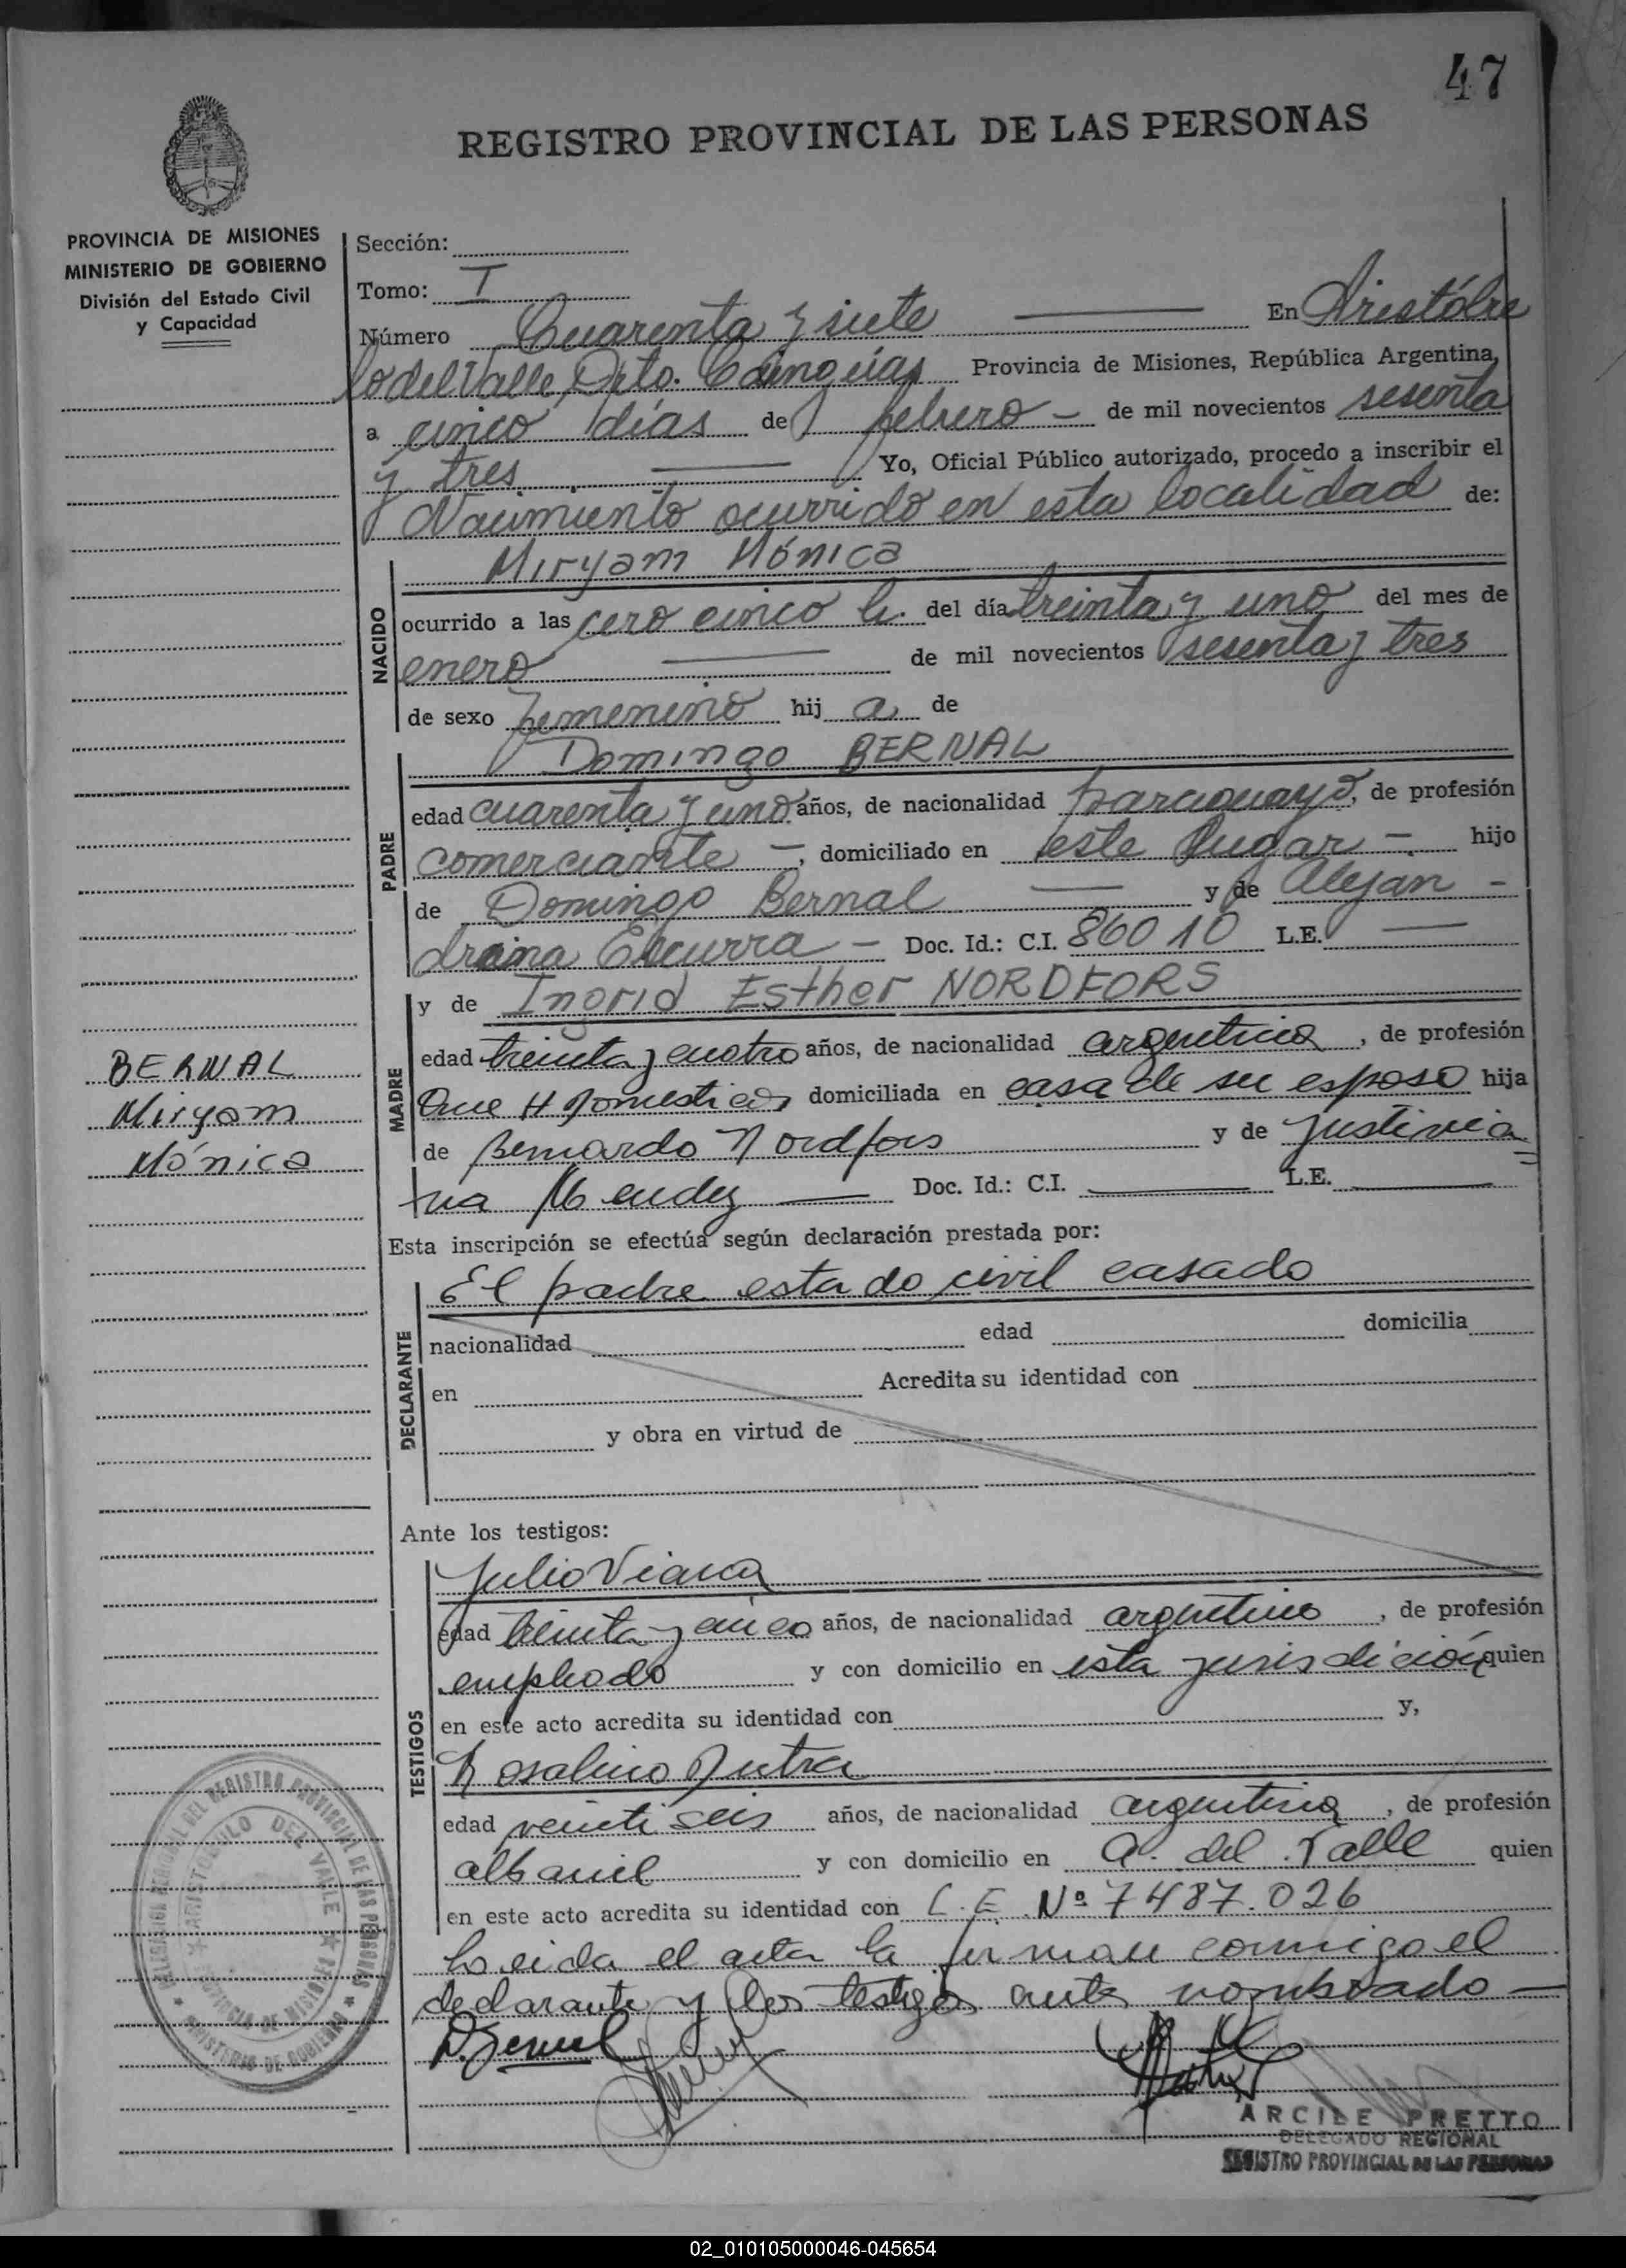 47
REGISTRO PROVINCIAL DE LAS PERSONAS
PROVINCIA DE MISIONES
MINISTERIO DE GOBIERNO
División del Estado Civil
y Capacidad
Sección:
Tomo: I
Número Cuarenta y siete En Aristóbu
lo del Valle, Dpto. Cainguás Provincia de Misiones, República Argentina,
a cinco días de febrero - de mil novecientos sesenta
y tres Yo, Oficial Público autorizado, procedo a inscribir el
Nacimiento ocurrido en esta localidad de:
Miryam Mónica
NACIDO
ocurrido a las cero cinco h. del día treinta y uno del mes de
enero de mil novecientos sesenta y tres
de sexo femenino hij a de
Domingo BERNAL
PADRE
edad cuarenta y uno años, de nacionalidad paraguayo, de profesión
comerciante -, domiciliado en este lugar - hijo
de Domingo Bernal y de Alejan -
drina - Doc. Id.: C.I. 86010 L.E.
y de Ingrid Esther NORDFORS
MADRE
edad treinta y cuatro años, de nacionalidad argentina, de profesión
Que H Domesticos domiciliada en casa de su esposo hija
de Bernardo Nordfors y de Justinia
na Mendez Doc. Id.: C.I. L.E.
BERNAL
Miryam
Mónica
Esta inscripción se efectúa según declaración prestada por:
El padre estado civil casado
DECLARANTE
nacionalidad edad domicilia
en Acredita su identidad con
y obra en virtud de
Ante los testigos:
Julio Viana
TESTIGOS
edad treinta y cinco años, de nacionalidad argentino, de profesión
empleado y con domicilio en esta jurisdición quien
en este acto acredita su identidad con y,
Rosalino Dutra
edad veinti seis años, de nacionalidad argentina, de profesión
albanil y con domicilio en A. del Valle quien
en este acto acredita su identidad con L.E. Nº 7487.026
Leida el acta la firman conmigo el
declarante y los testigos antes nombrado -
D. Bernal
DELEGACION REGIONAL DEL REGISTRO PROVINCIAL DE LAS PERSONAS
MINISTERIO DE GOBIERNO
ARISTOBULO DEL VALLE
PROVINCIA DE MISIONES
ARCILE PRETTO
DELEGADO REGIONAL
REGISTRO PROVINCIAL DE LAS PERSONAS
02_010105000046-045654